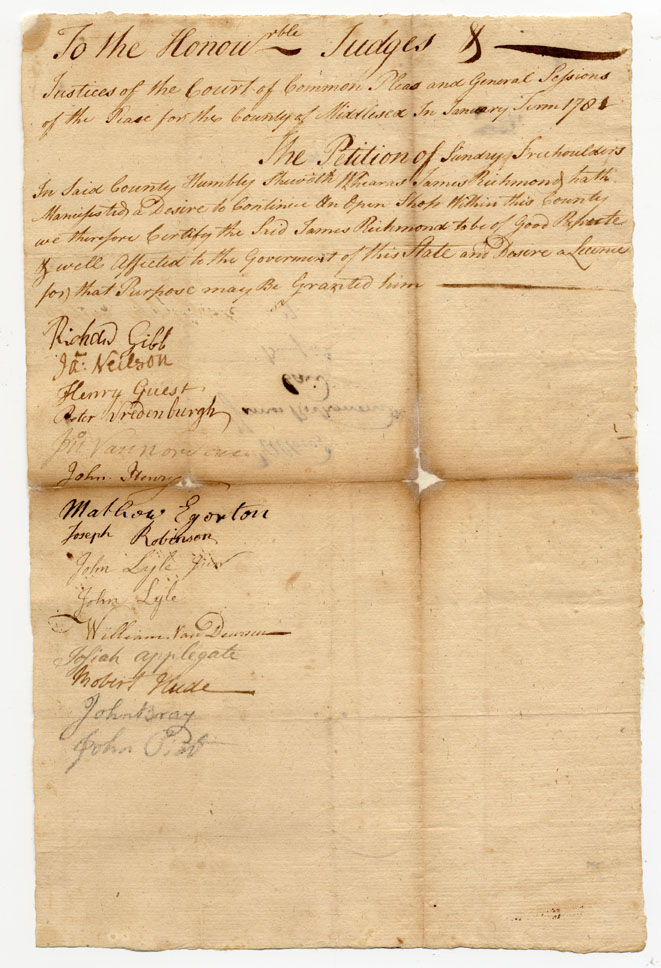 To the Honourble Judges &
Justices of the Court of Common Pleas and General Sessions
of the Peace for the County of Middlesex In January Term 1781
The Petition of Sundry Freehoulders
In Said County Humbly Sheweth Whearas James Richmond hath
Manifisted a Desire to Continue an Open Shop Within this County
we therefore Certify the Said James Richmond to be of Good Repute
& well Affected to the Goverment of this State and Desire a Licence
for that Purpose may Be Granted him
Richard Gibb
Ja. Neilson
Henry Guest
Peter Vredenburgh
Jno Van
John Henry
Mathew Egerton
Joseph Robinson
John Lyle Jun
John Lyle
William Van Deursen
Josiah Applegate
Robert Hude
John Bray
John